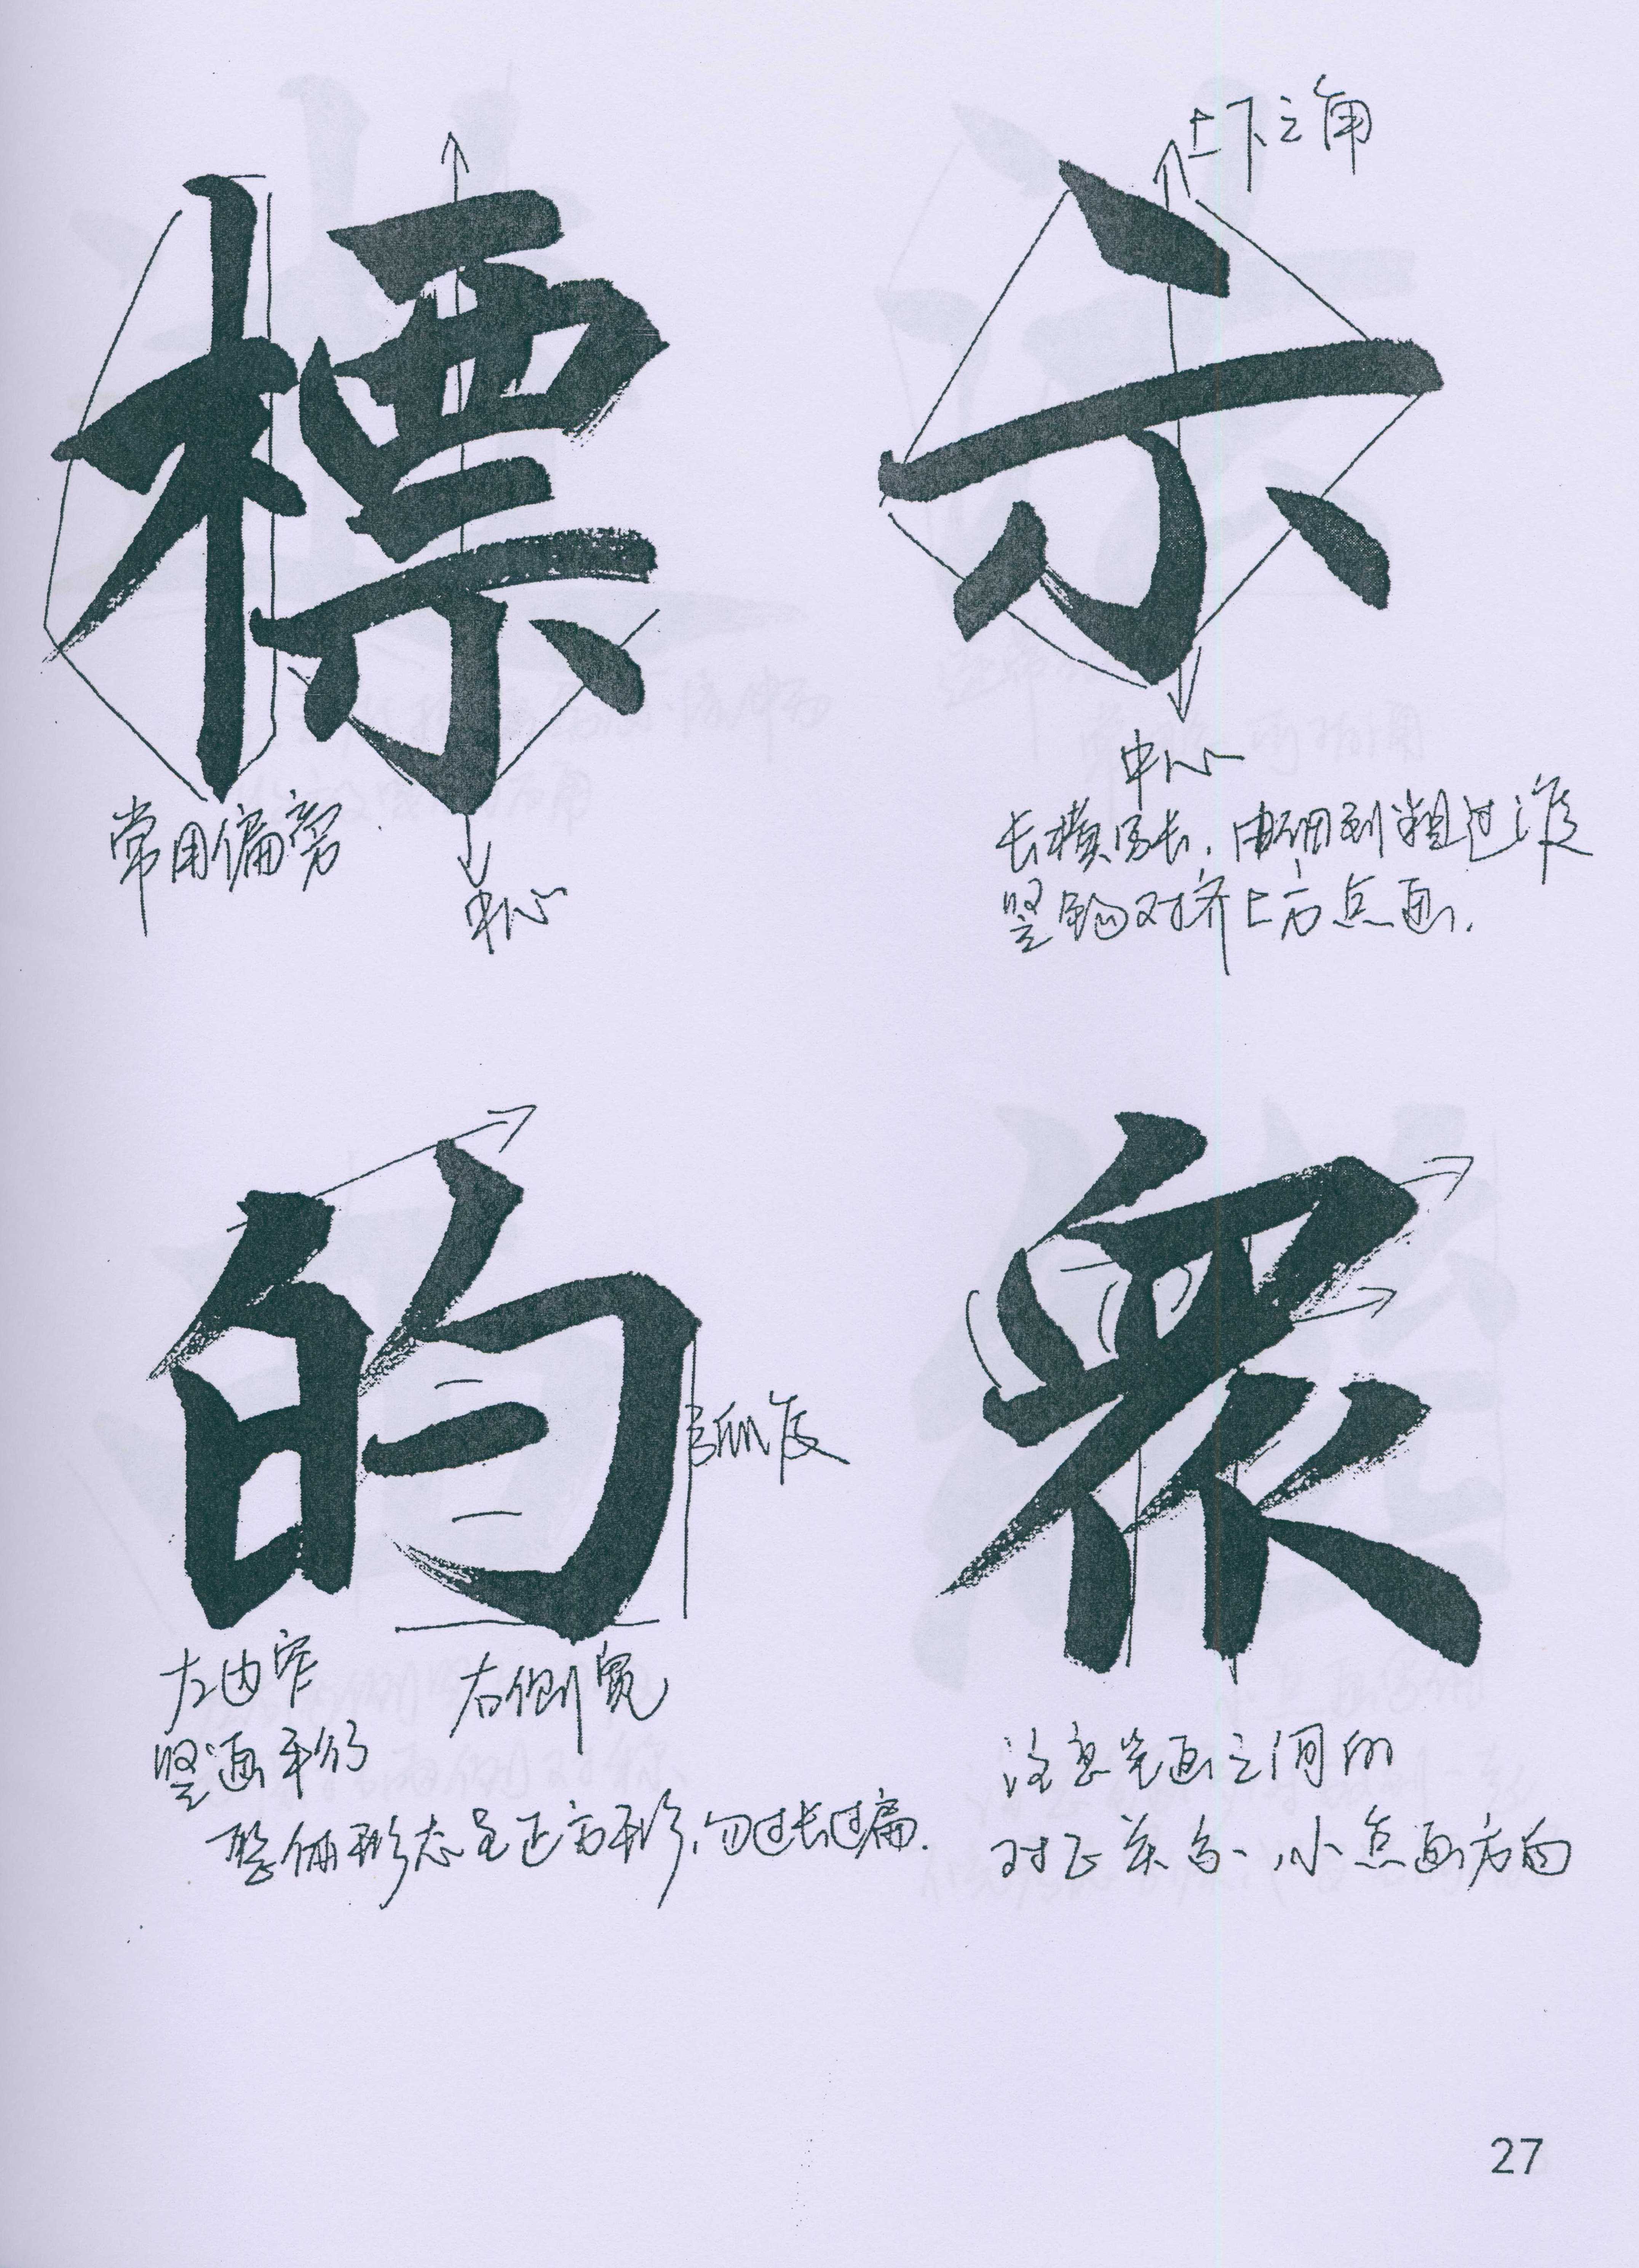 標
常用偏旁
中心
上下之角
示
中心
长横写长，由细到粗过渡
竖钩对齐上方点画.
的
左边窄 右侧宽
竖画平行
整体形态呈正方形，勿过长过扁.
眾
注意笔画之间的
对正关系、小点画方向
27